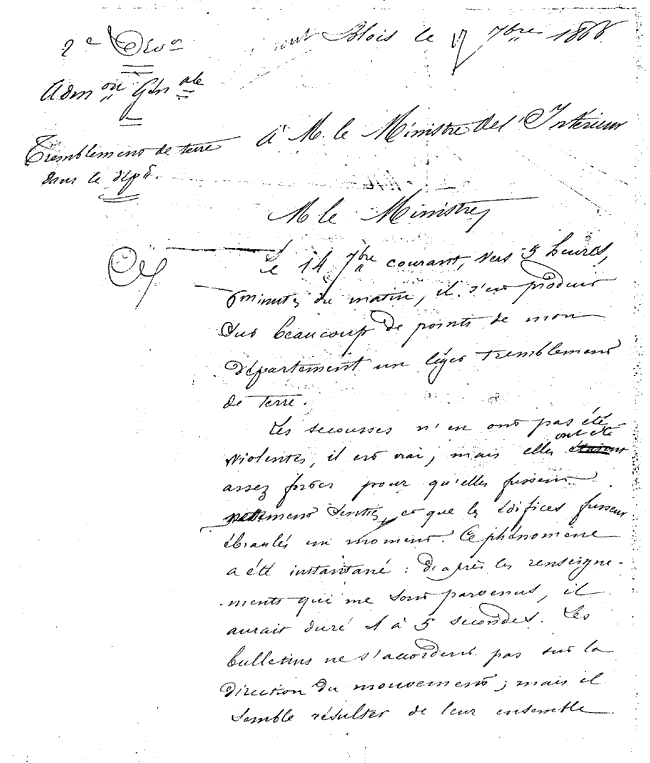 2e Dion
Blois le 17 7bre 1866
Admon Génale
À M. le Ministre de l'Intérieur
Tremblement de terre
dans le dépt.
M le Ministre,
Le 14 7bre courant, vers 5 heures,
6 minutes du matin, il s'est produit
sur beaucoup de points de mon
département un léger tremblement
de terre.
Les secousses n'en ont pas été
violentes, il est vrai, mais elles ont été
assez fortes pour qu'elles fussent
nettement senties, et que les édifices fussent
ébranlés un moment. Ce phénomène
a été instantané : d'après les renseigne-
-ments qui me sont parvenus, il
aurait duré 1 à 5 secondes. Les
bulletins ne s'accordent pas sur la
direction du mouvement ; mais il
semble résulter de leur ensemble